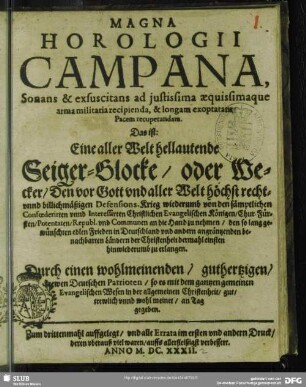 1.
MAGNA
HOROLOGII
CAMPANA,
Sonans & exsuscitans ad justissima æquissimaque
arma militaria recipienda, & longam exoptatam
Pacem recuperandam.
Das ist:
Eine aller Welt hellautende
Seiger-Glocke / oder We-
cker / Den vor Gott vnd aller Welt höchst recht-
vnnd billichmäßigen Defensions-Krieg wiederumb von den sämptlichen
Confœderirten vnnd Interessirten Christlichen Evangelischen Königen / Chur Für-
sten / Potentaten / Republ. vnd Communen an die Hand zu nehmen / den so lang ge-
wünschten edlen Frieden in Deutschland vnd andern angräntzenden be-
nachbarten Ländern der Christenheit dermahl einsten
hinwiederumb zu erlangen.
Durch einen wohlmeinenden / guthertzigen /
trewen Deutschen Patrioten / so es mit dem gantzen gemeinen
Evangelischen Wesen in der allgemeinen Christenheit / gut /
trewlich vnnd wohl meinet / an Tag
gegeben.
Zum drittenmahl auffgelegt / vnd alle Errata im ersten vnd andern Druck /
deren vberaus viel waren / auffs allerfleißigst verbessert.
ANNO M. DC. XXXII.
SLUB